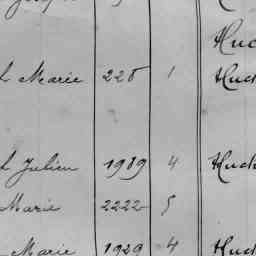 Huc
Marie 228 1 Huck
Julien 1989 4 Huck
Marie 2222 5
Marie 1929 4 Huck